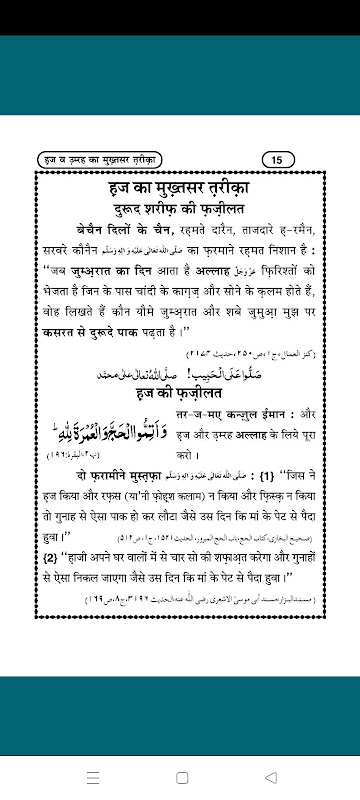 हज व उ़म्रह का मुख़्तसर त़रीक़ा
15
ह़ज का मुख़्तसर त़रीक़ा
दुरूद शरीफ़ की फ़ज़ीलत
बेचैन दिलों के चैन, रहमते दारैन, ताजदारे ह़-रमैन,
सरवरे कौनैन صَلَّى اللهُ تَعَالٰى عَلَيْهِ وَاٰلِهٖ وَسَلَّم का फ़रमाने रह़मत निशान है :
‘‘जब जुम्अ़रात का दिन आता है अल्लाह عَزَّوَجَلَّ फ़िरिश्तों को
भेजता है जिन के पास चांदी के काग़ज़ और सोने के क़लम होते हैं,
वोह लिखते हैं कौन यौमे जुम्अ़रात और शबे जुमुआ़ मुझ पर
कसरत से दुरूदे पाक पढ़ता है।’’
(کنز العمال، ج۱، ص۲۵۰، حدیث۲۱۷۴)
صَلُّوا عَلَی الْحَبِیْب! صلَّی اللهُ تعالٰی علٰی محمَّد
हज की फ़ज़ीलत
وَ اَتِمُّوا الْحَجَّ وَ الْعُمْرَةَ لِلّٰهِؕ
(پ۲، البقرة:۱۹۶)
तर-ज-मए कन्ज़ुल ईमान : और
हज और उ़म्रह अल्लाह के लिये पूरा
करो ।
दो फ़रामीने मुस्त़फ़ा صَلَّى اللهُ تَعَالٰى عَلَيْهِ وَاٰلِهٖ وَسَلَّم : {1} ‘‘जिस ने
हज किया और रफ़स (या'नी फ़ोह़्श कलाम) न किया और फ़िस्क़ न किया
तो गुनाह से ऐसा पाक हो कर लौटा जैसे उस दिन कि मां के पेट से पैदा
हुवा।’’ (صحیح البخاری، کتاب الحج، باب الحج المبرور، الحدیث۱۵۲۱، ج۱، ص۵۱۲)
{2} ‘‘ह़ाजी अपने घर वालों में से चार सो की शफ़ाअ़त करेगा और गुनाहों
से ऐसा निकल जाएगा जैसे उस दिन कि मां के पेट से पैदा हुवा।’’
(مسند البزار، مسند أبی موسیٰ الاشعری رضی اللّٰه عنه، الحدیث۳۱۹۶، ج۸، ص۱۶۹)